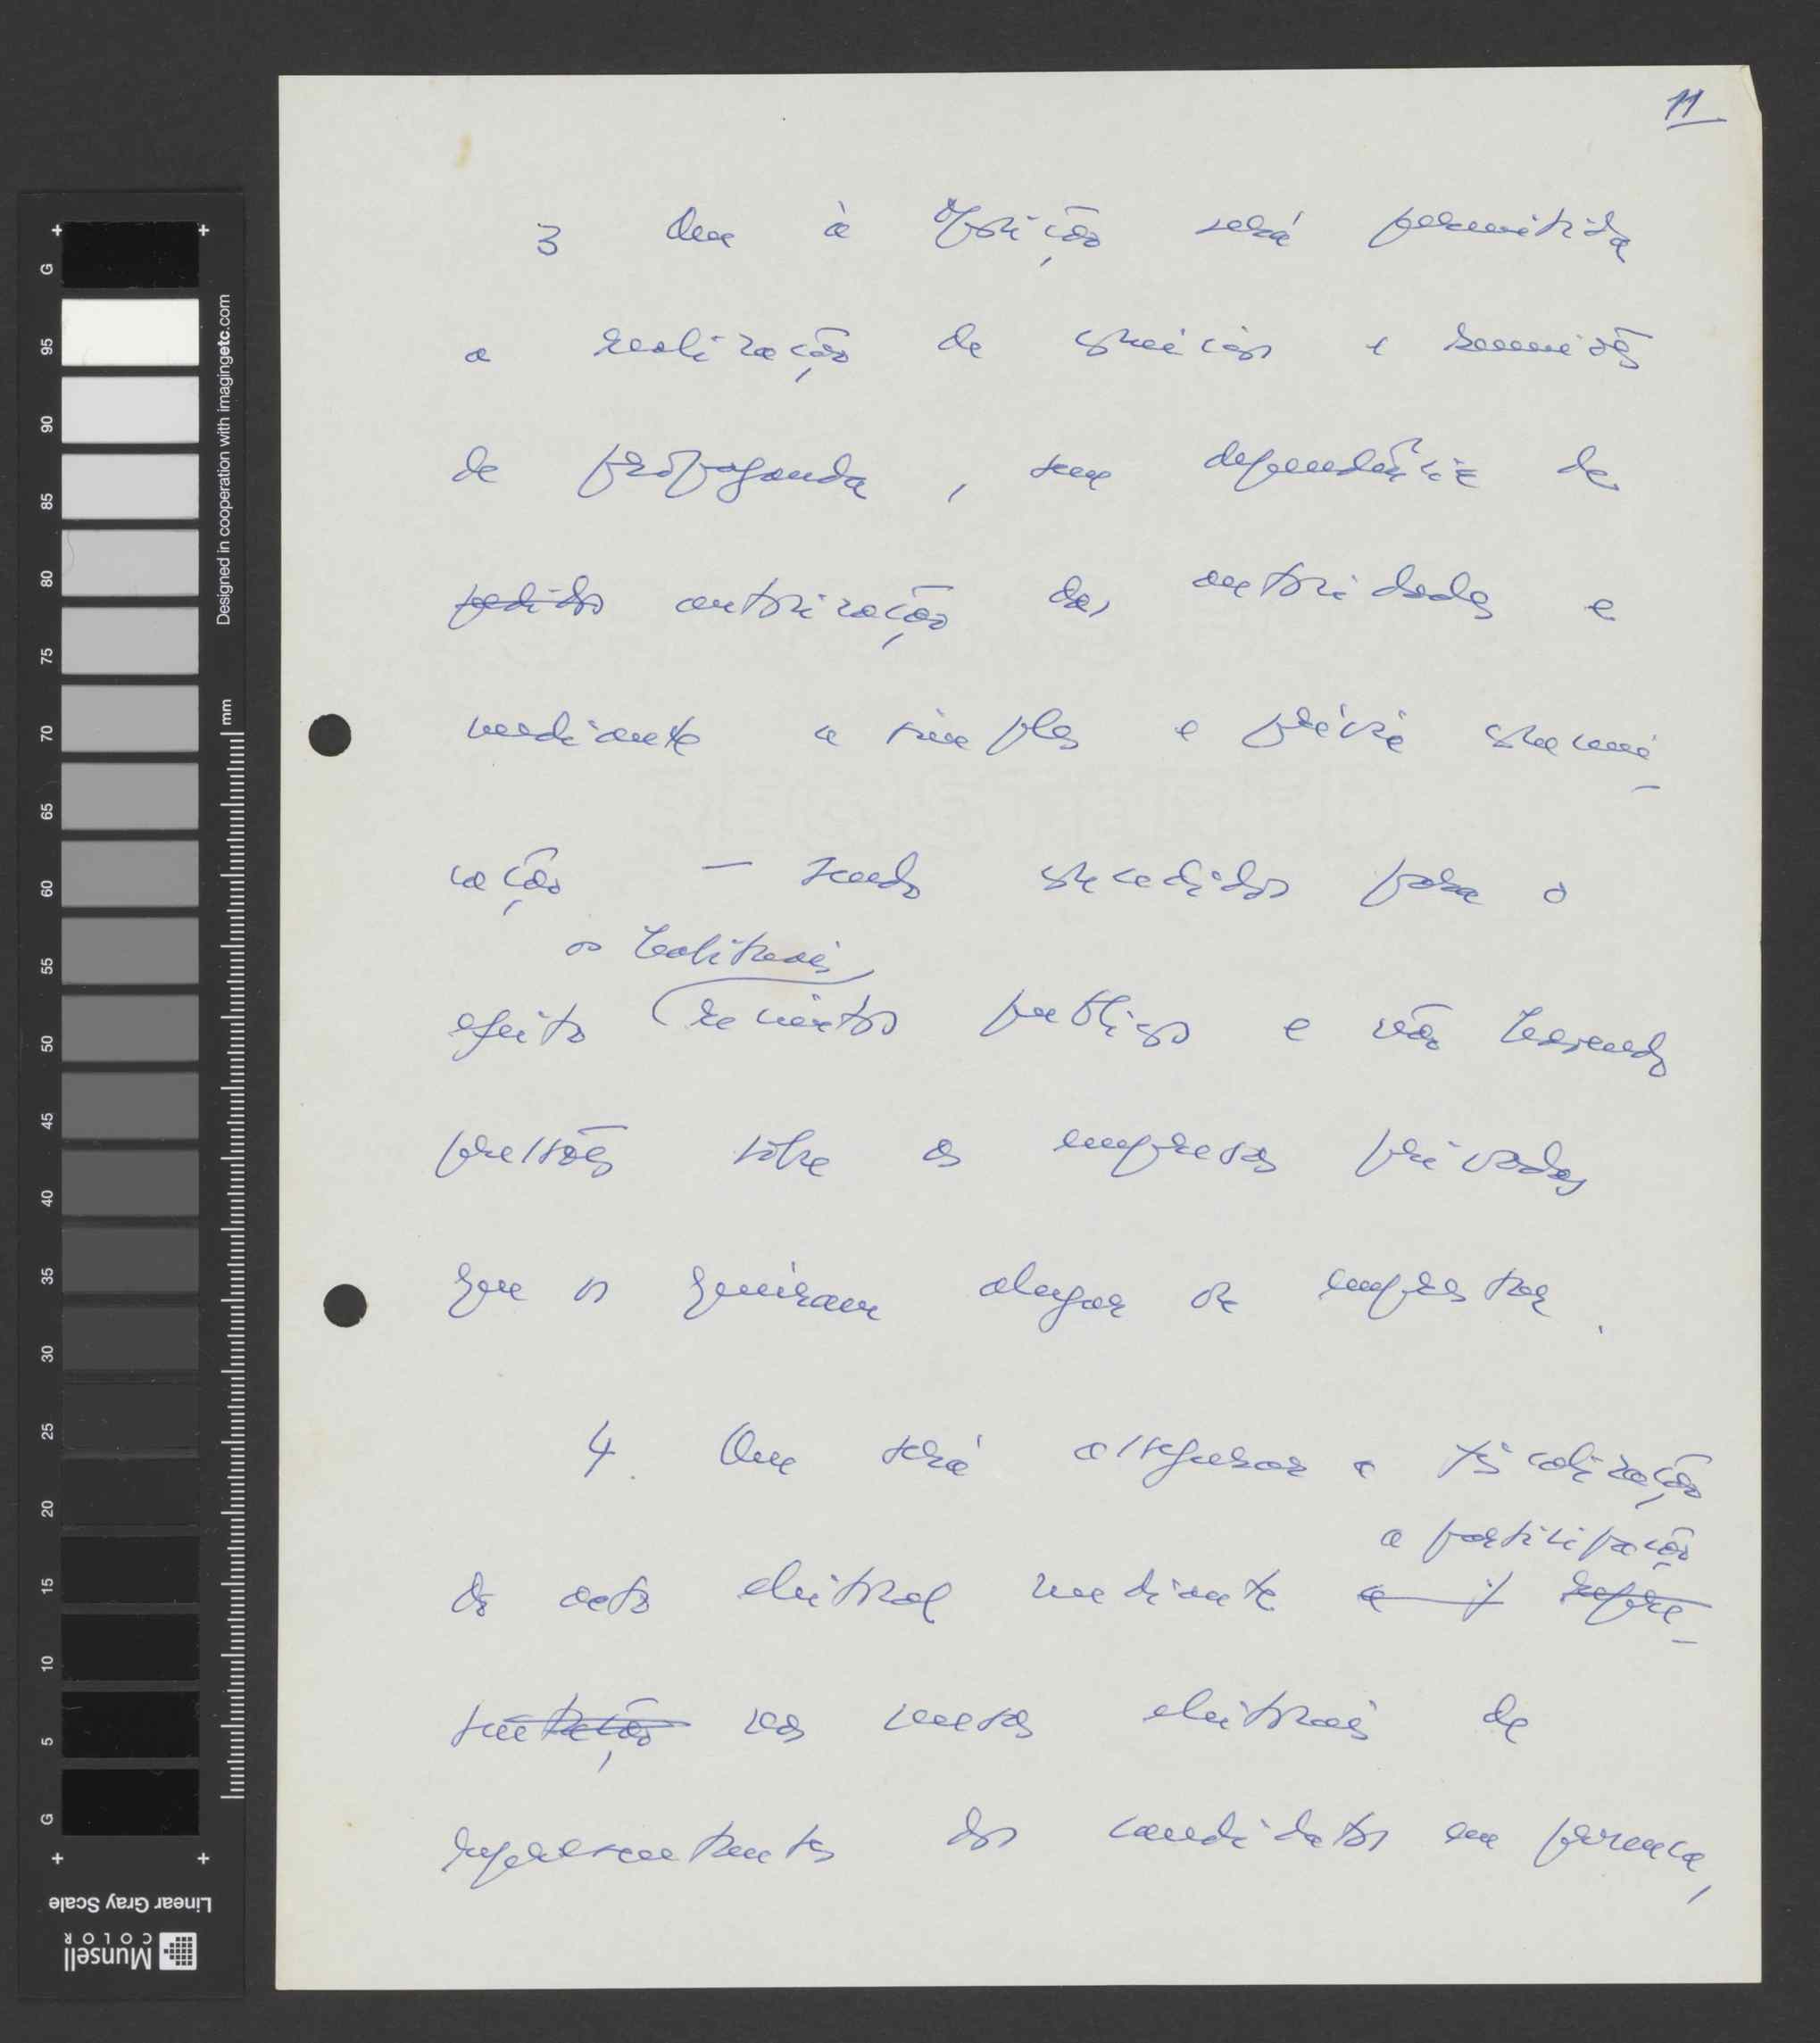 11
3 Que à Oposição será permitida
a realização de comícios e reuniões
de propaganda, sem dependência de
pedido autorização das autoridades e
mediante a simples e prévia comuni-
cação — sendo concedidos para o
os habituais
efeito recintos publicos e não havendo
pressões sobre as empresas privadas
que os queiram alugar ou emprestar.
4. Que será assegurar a fiscalização
a participação
do acto eleitoral mediante a repre-
sentação nas mesas eleitorais de
representantes dos candidatos em presença,
G
95
90
85
80
75
70
65
60
55
50
45
40
35
30
25
20
15
10
5
G
Designed in cooperation with imagingetc.com
mm
Linear Gray Scale
Munsell
COLOR